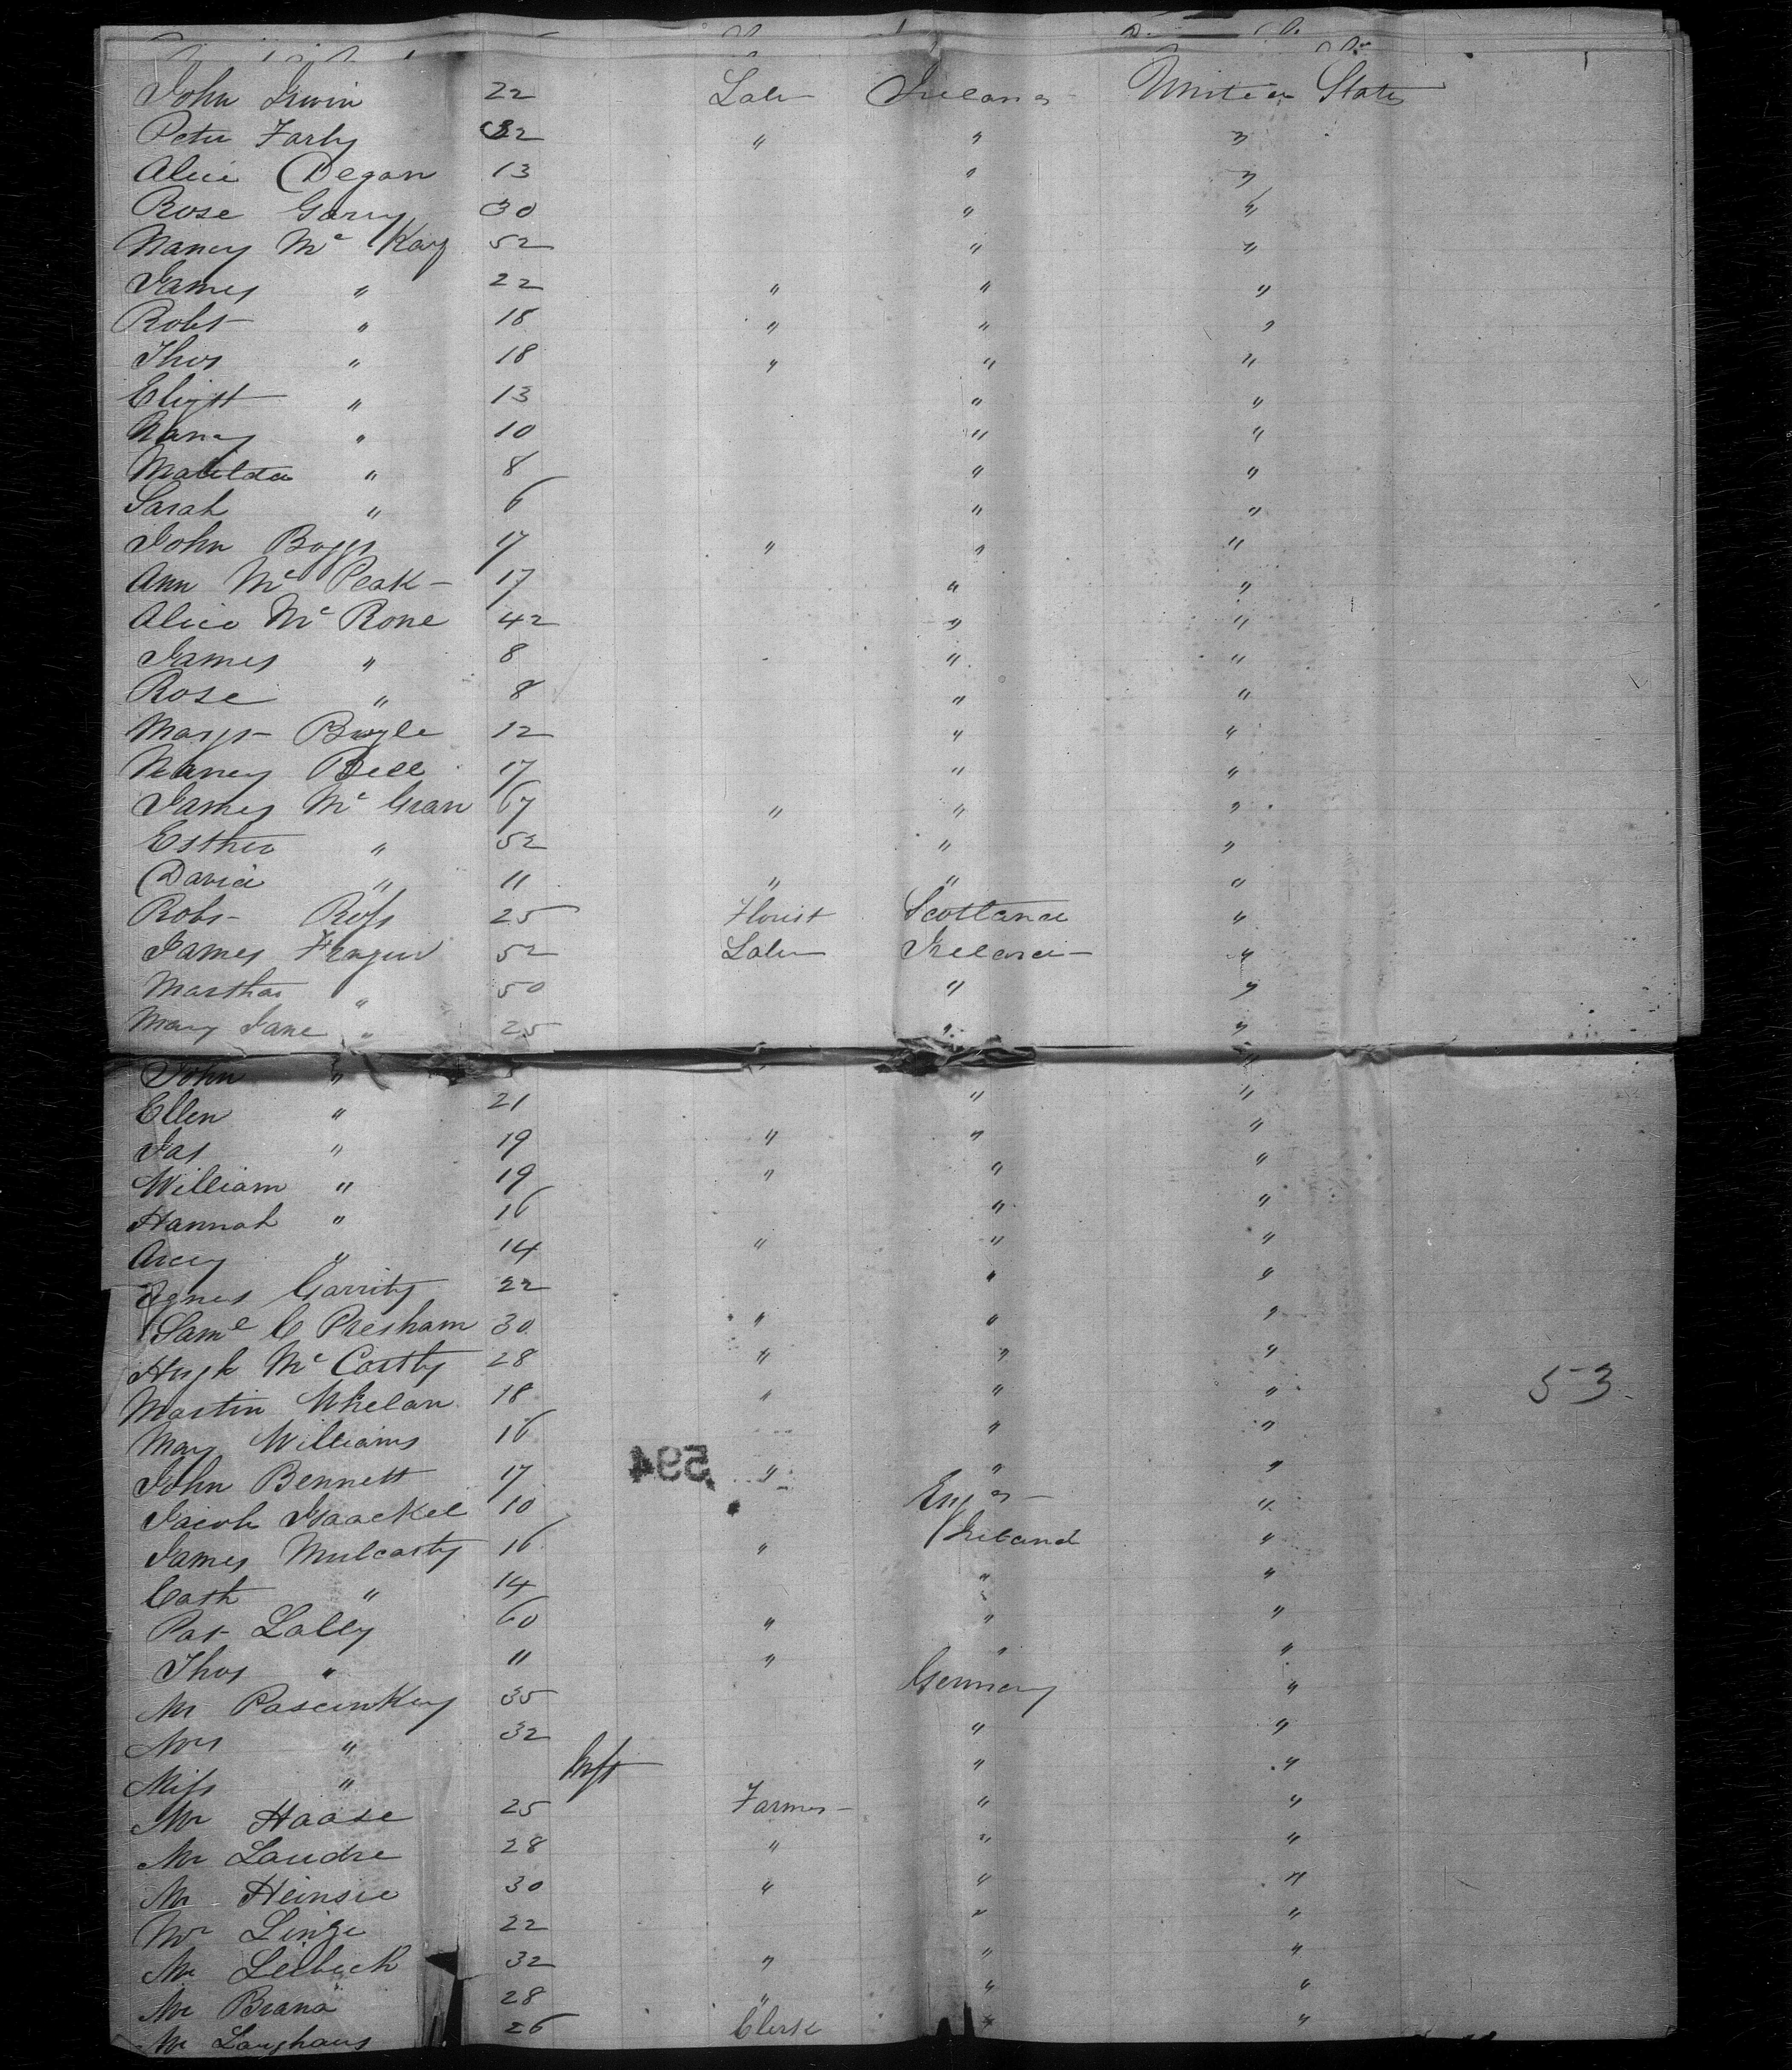 John Irwin 22 Labr Ireland United States
Peter Farly 32 " " "
Alice Degan 13 " "
Rose Garry 30 " "
Nancy Mc Kay 52 " "
James " 22 " " "
Robt " 18 " " "
Thos " 18 " " "
Elizth " 13 " "
Nancy " 10 " "
Matilda " 8 " "
Sarah " 6 " "
John Boggs 17 " " "
Ann Mc Peak 17 " "
Alice Mc Rone 42 " "
James " 8 " "
Rose " 8 " "
Margt Boyle 12 " "
Nancy Bell 17 " "
James Mc Gran 67 " " "
Esther " 52 " "
David " 11 " " "
Robt Ross 25 Florist Scotland "
James 52 Labr Ireland "
Martha " 50 " "
Mary Jane " 25 " "
John " "
Ellen " 21 " "
Jas " 19 " " "
William " 19 " " "
Hannah " 16 " "
" 14 " " "
Agnes Garrity 22 " "
Saml C Presham 30 " " "
Hugh Mc Carthy 28 " " "
Martin Whelan 18 " " "
Mary Williams 16 " "
John Bennett 17 " " "
594
Jacob Isaackel 10 Engd "
James Mulcarty 16 " Ireland "
Cath " 14 " "
Pat Lally 60 " " "
Thos " 11 " " "
Mr 35 Germany "
Mrs " 32 " "
Miss " Inft " "
Mr Haase 25 Farmer " "
Mr Laudre 28 " " "
Mr Heinsie 30 " " "
Mr Linze 22 " "
Mr Leibeck 32 " " "
Mr Brand 28 " " "
Mr Langhans 26 Clerk " "
53